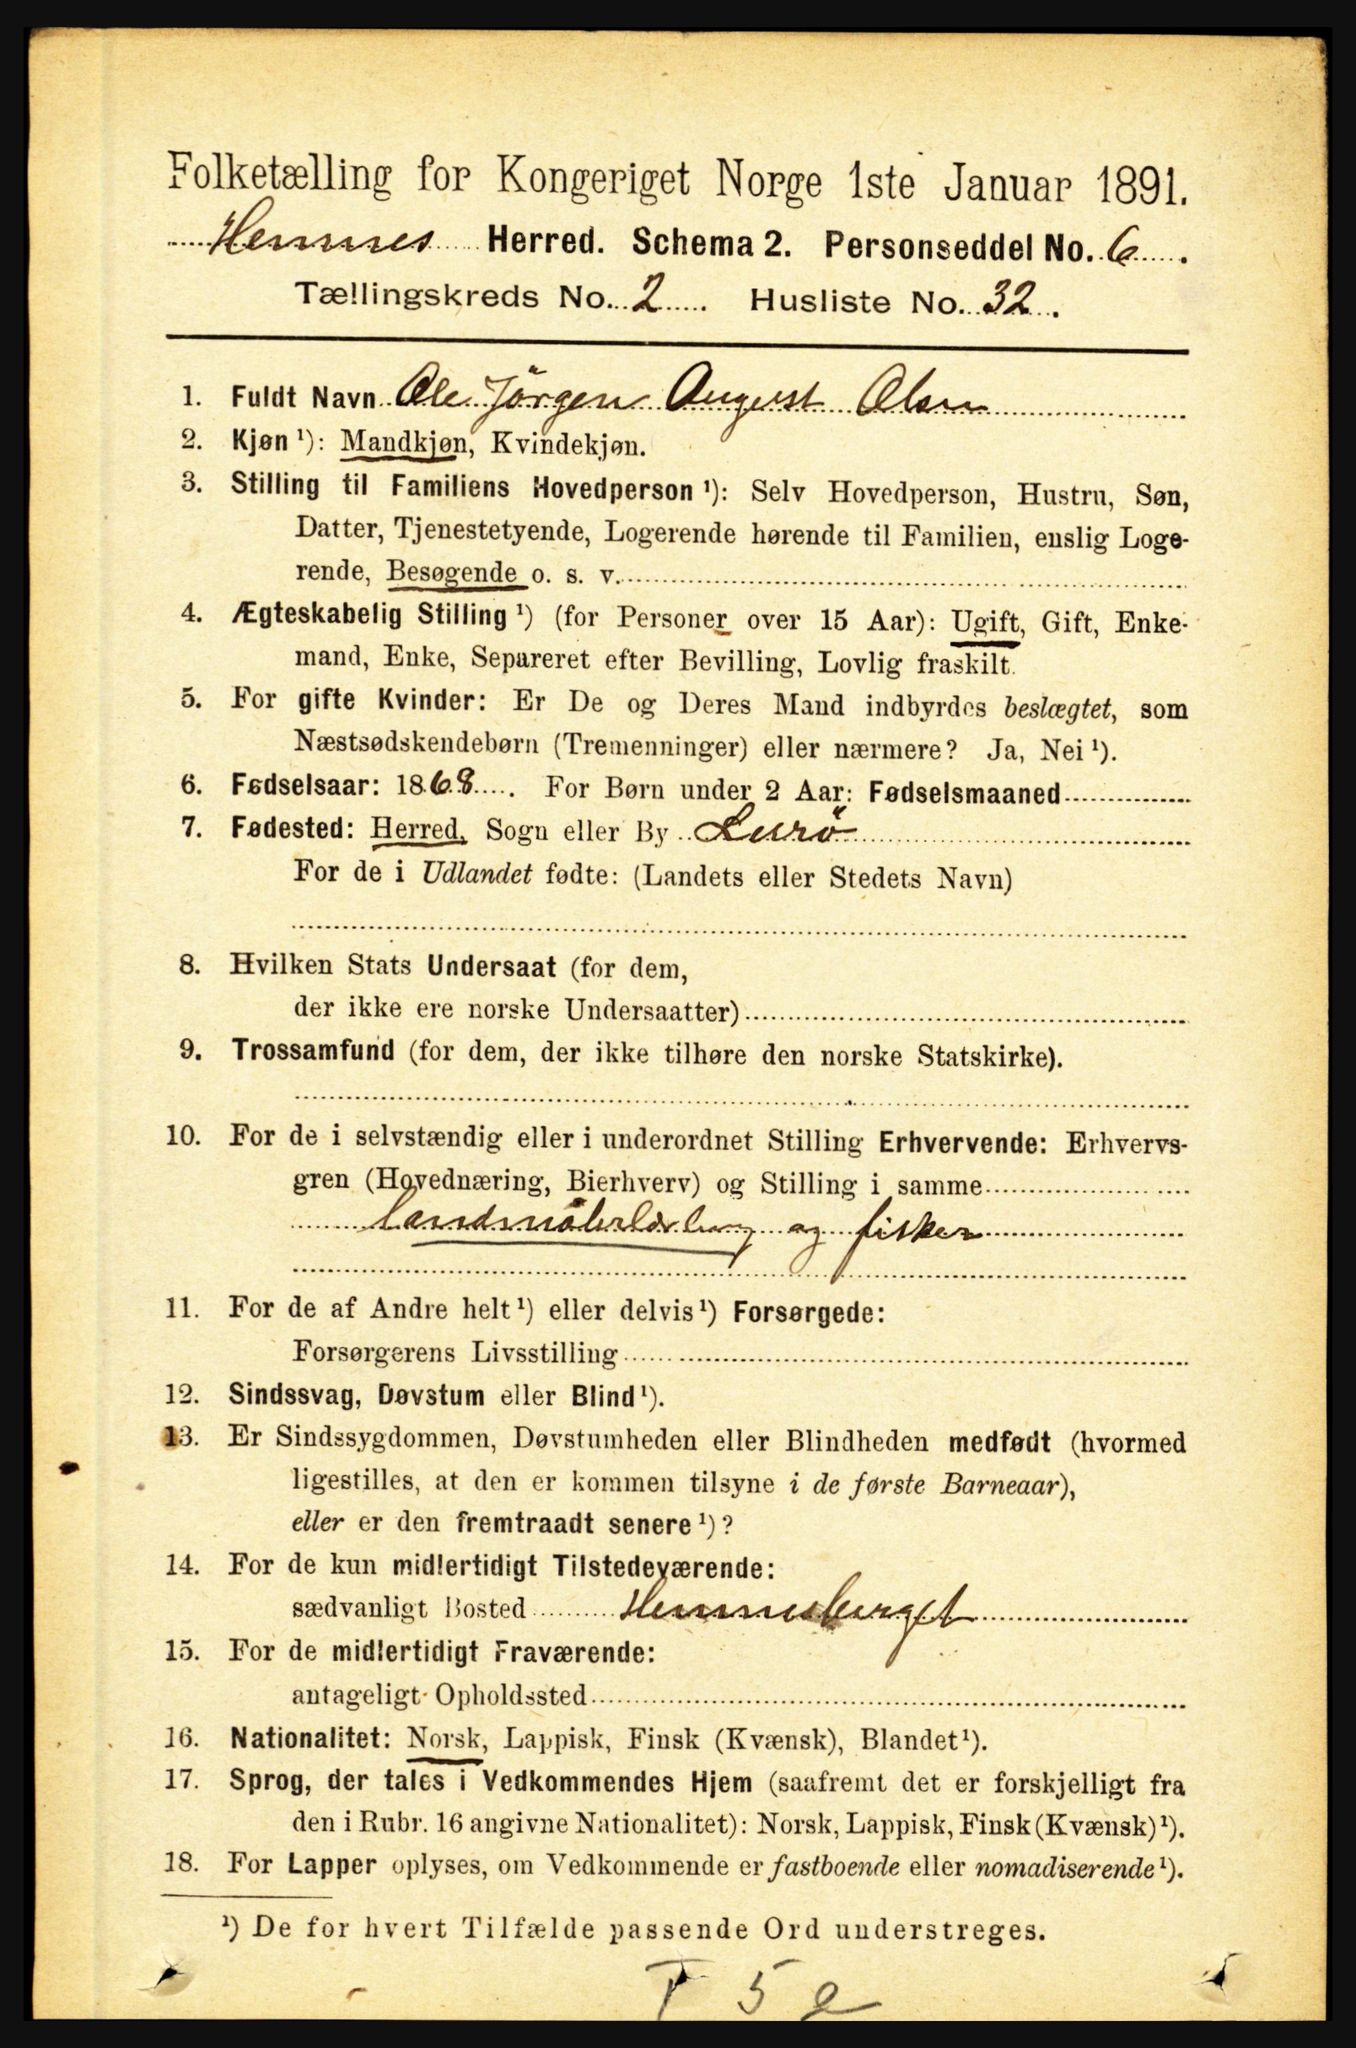 Folketælling for Kongeriget Norge 1ste Januar 1891.
Hemnes Herred. Schema 2. Personseddel No. 6.
Tællingskreds No. 2. Husliste No. 32.
1. Fuldt Navn Ole Jörgen August Olsen
2. Kjøn ¹): Mandkjøn, Kvindekjøn.
3. Stilling til Familiens Hovedperson ¹): Selv Hovedperson, Hustru, Søn,
Datter, Tjenestetyende, Logerende hørende til Familien, enslig Loge-
rende, Besøgende o. s. v.
4. Ægteskabelig Stilling ¹) (for Personer over 15 Aar): Ugift, Gift, Enke-
mand, Enke, Separeret efter Bevilling, Lovlig fraskilt.
5. For gifte Kvinder: Er De og Deres Mand indbyrdes beslægtet, som
Næstsødskendebørn (Tremenninger) eller nærmere? Ja, Nei ¹).
6. Fødselsaar: 1868. For Børn under 2 Aar: Fødselsmaaned
7. Fødested: Herred, Sogn eller By Lurö
For de i Udlandet fødte: (Landets eller Stedets Navn)
8. Hvilken Stats Undersaat (for dem,
der ikke ere norske Undersaatter)
9. Trossamfund (for dem, der ikke tilhøre den norske Statskirke).
10. For de i selvstændig eller i underordnet Stilling Erhvervende: Erhvervs-
gren (Hovednæring, Bierhverv) og Stilling i samme
og fisker
11. For de af Andre helt ¹) eller delvis ¹) Forsørgede:
Forsørgerens Livsstilling
12. Sindssvag, Døvstum eller Blind ¹).
13. Er Sindssygdommen, Døvstumheden eller Blindheden medfødt (hvormed
ligestilles, at den er kommen tilsyne i de første Barneaar),
eller er den fremtraadt senere ¹)?
14. For de kun midlertidigt Tilstedeværende:
sædvanligt Bosted Hemnesberget
15. For de midlertidigt Fraværende:
antageligt Opholdssted
16. Nationalitet: Norsk, Lappisk, Finsk (Kvænsk), Blandet ¹).
17. Sprog, der tales i Vedkommendes Hjem (saafremt det er forskjelligt fra
den i Rubr. 16 angivne Nationalitet): Norsk, Lappisk, Finsk (Kvænsk) ¹).
18. For Lapper oplyses, om Vedkommende er fastboende eller nomadiserende ¹).
¹) De for hvert Tilfælde passende Ord understreges.
T 5 2